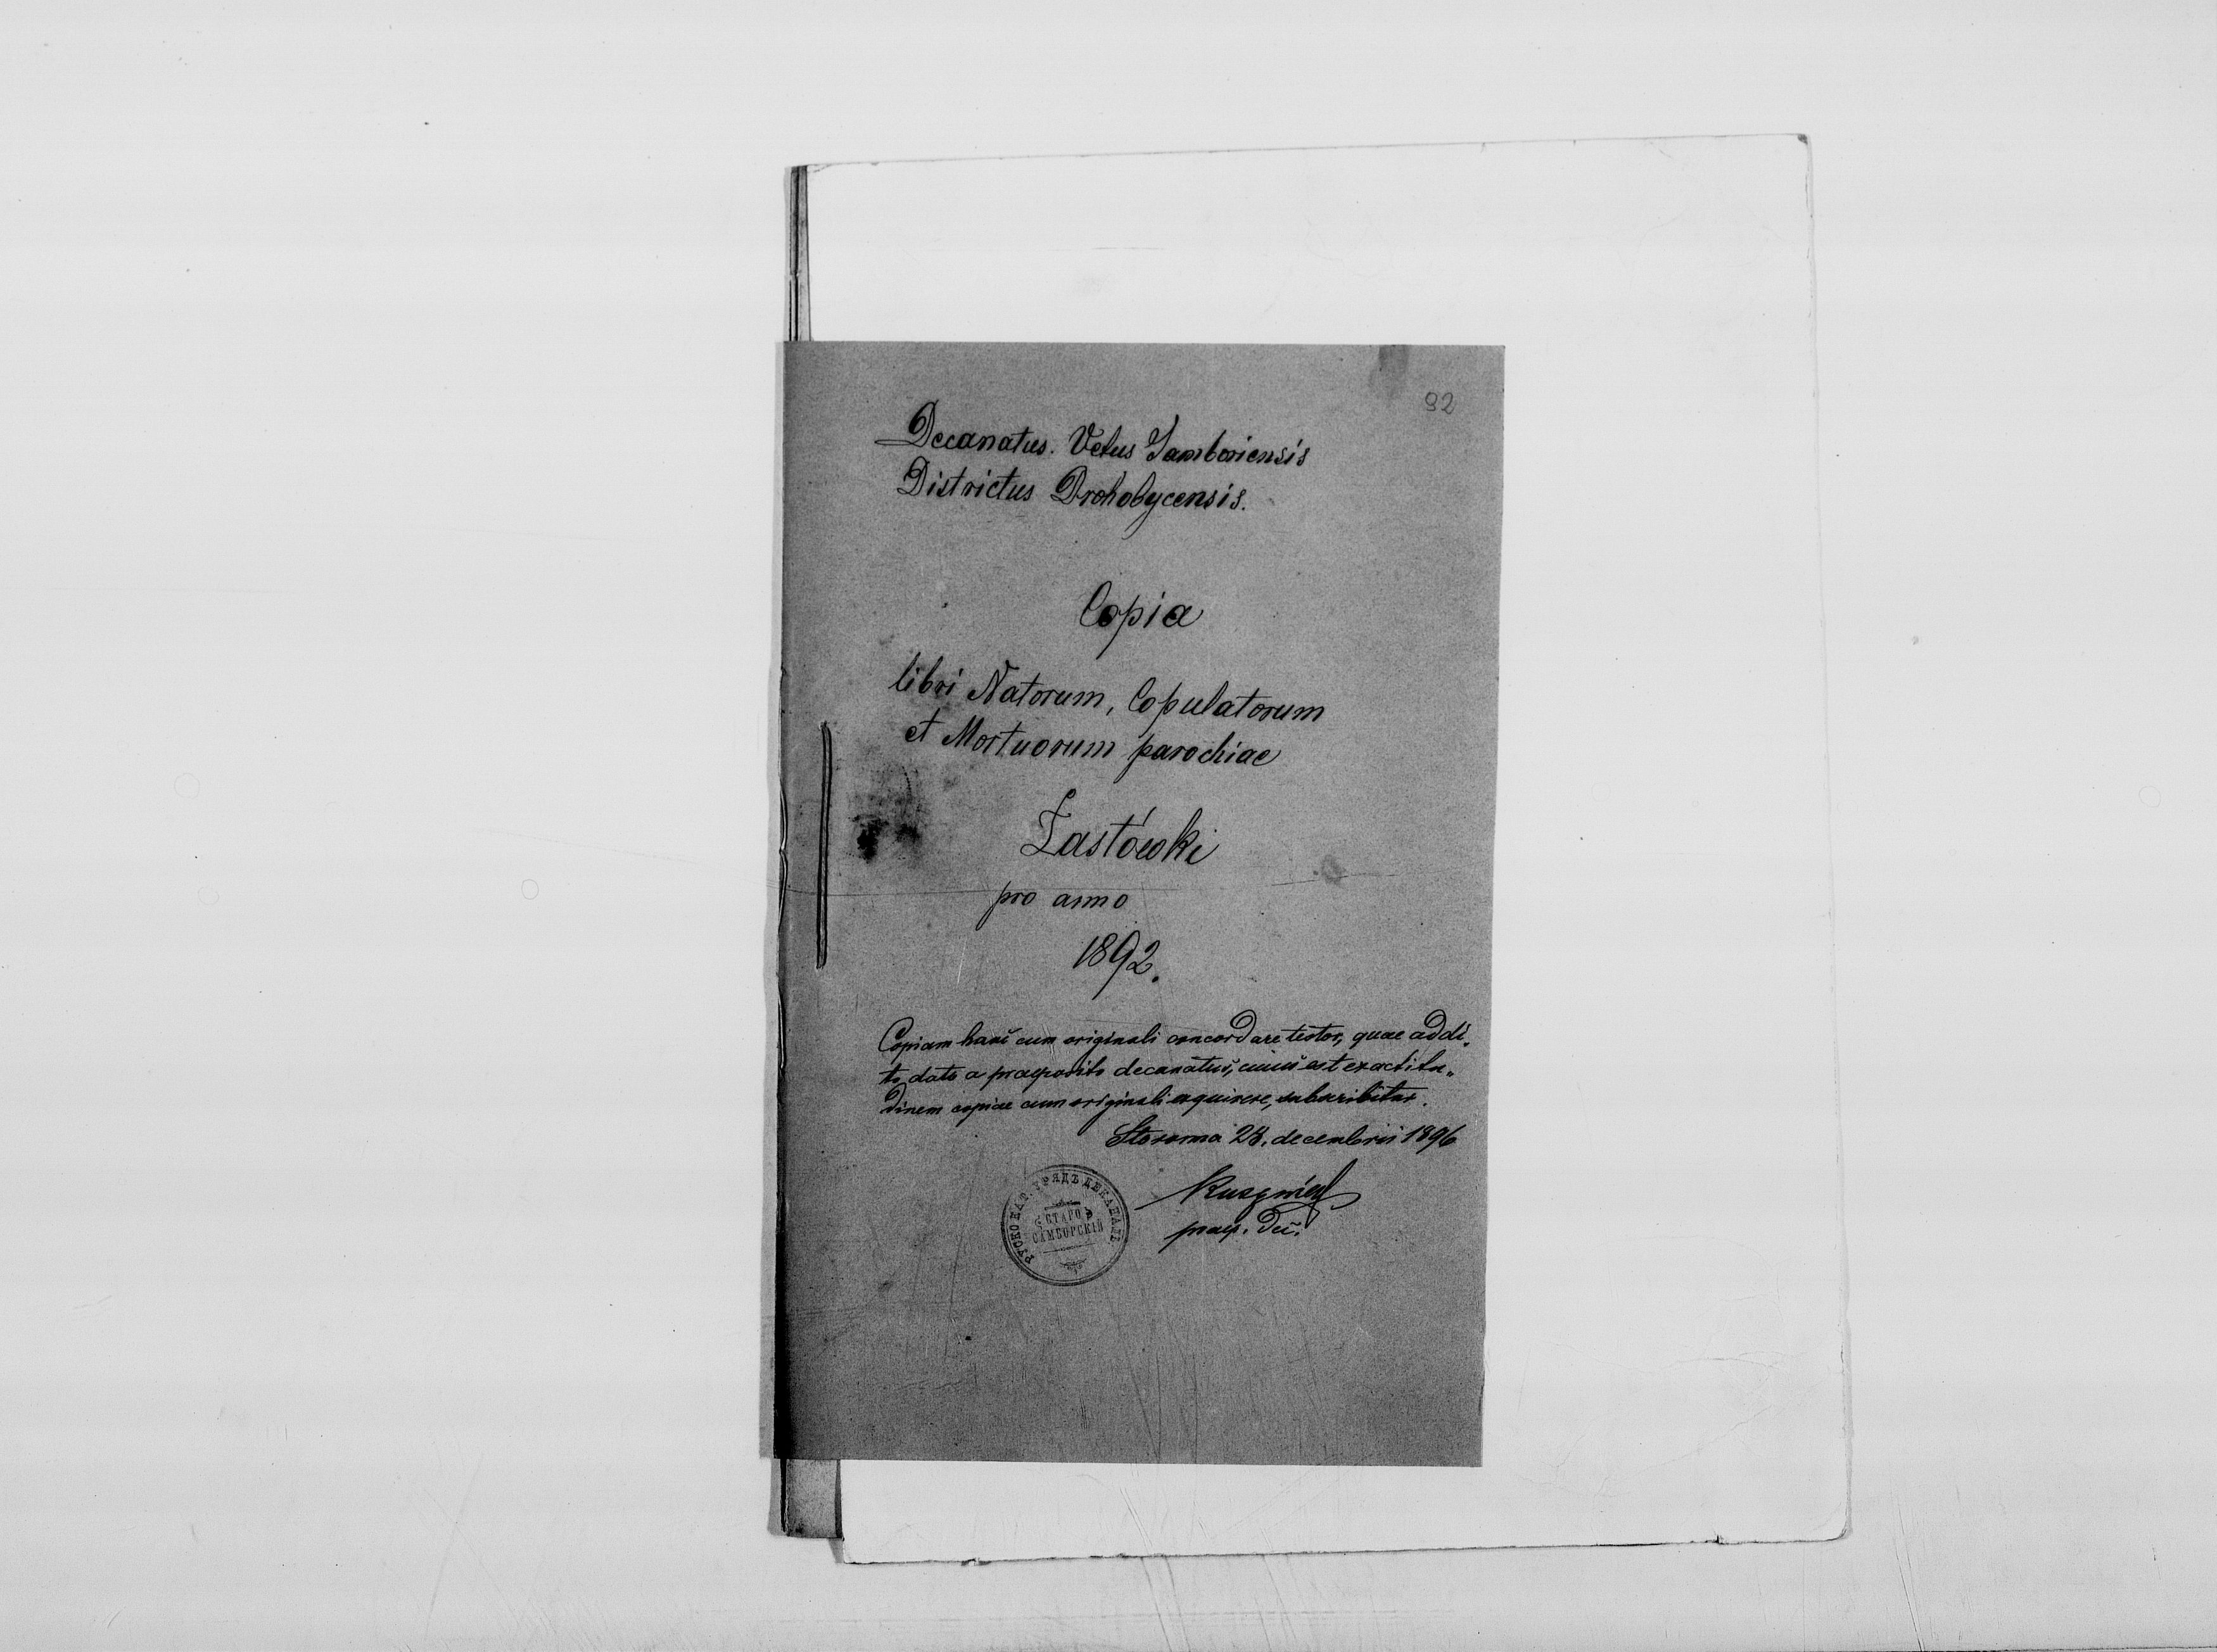 92
Decanatus. Vetus Samboriensis
Districtus Drohobycensis.
Copia
libri Natorum, Copulatorum
et Mortuorum parochiae
Łastówki
pro anno
1892.
Copiam hanc cum originali concordare testor, quae addi„
to dato a praeposito decanatus, cuius est exactitu„
dinem copiae cum originali exquirere, subscribitur.
28. decembris 1896
praep. Dec.
РУСКО КАТ. УРЯДЪ ДЕКАНАЛЬ
СТАРО
САМБОРСКІЙ